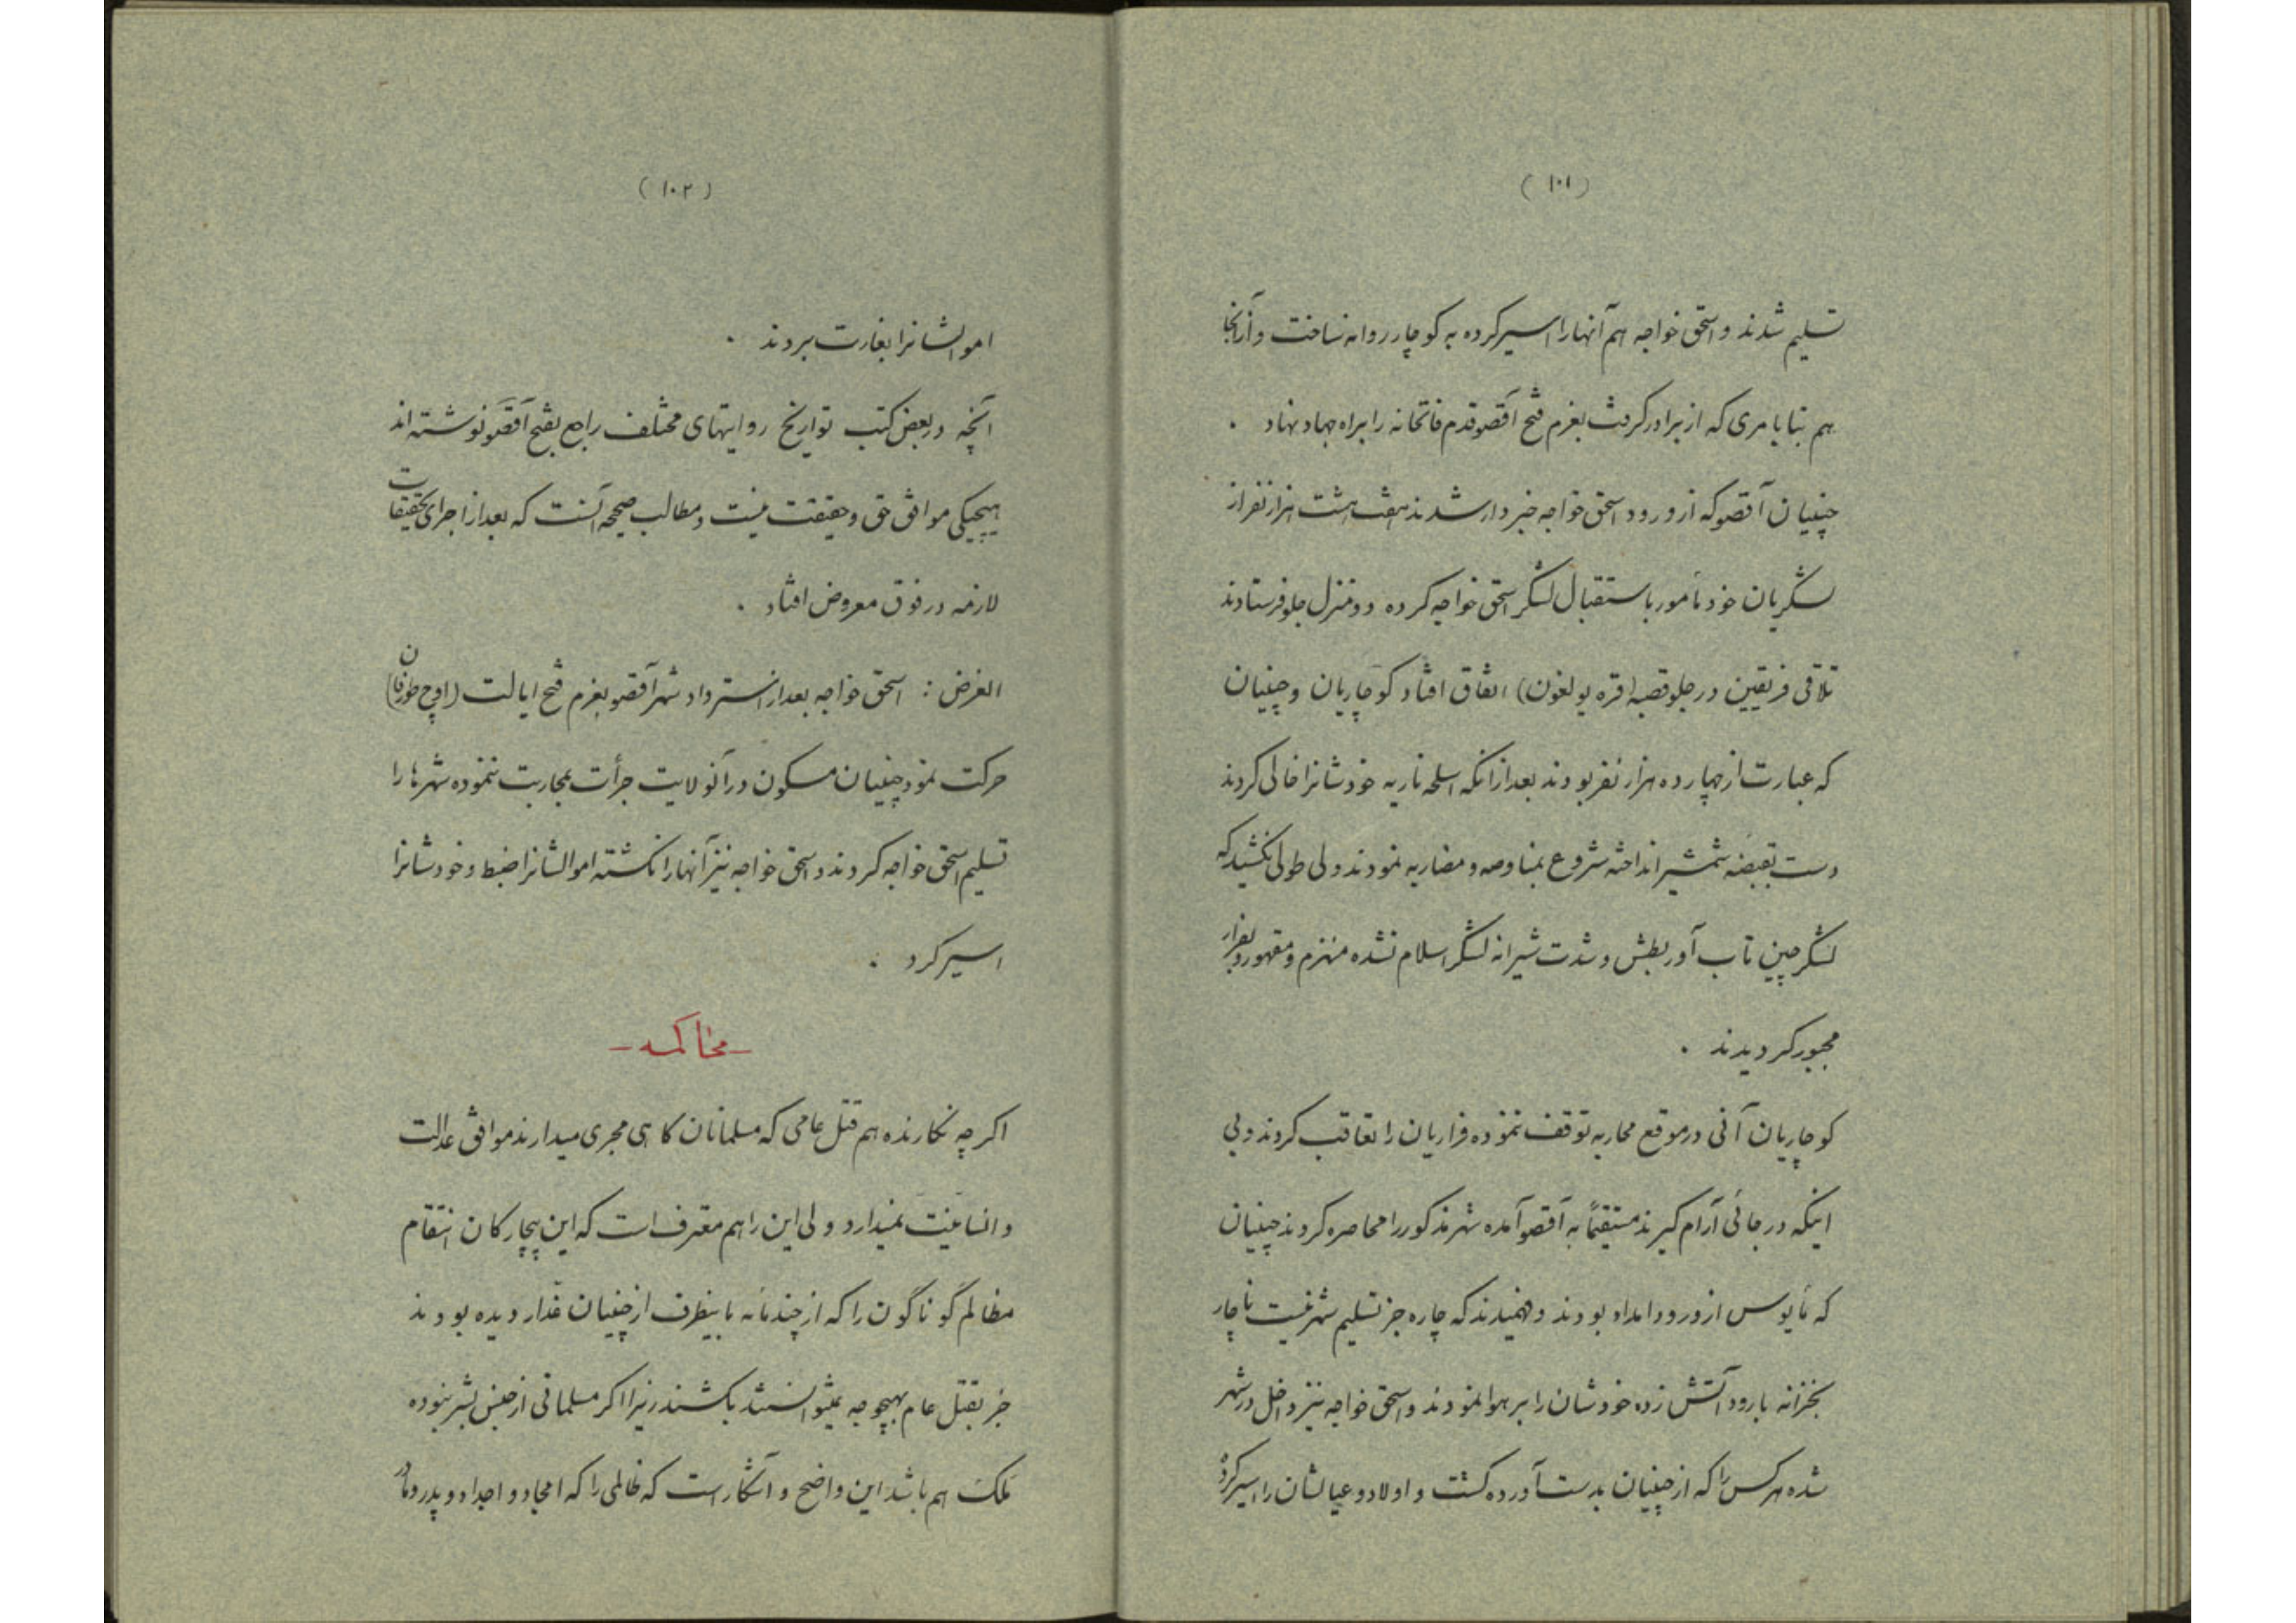 (۱۰۱)
تسلیم شدند و اسحق خواجه هم آنها را اسیر کرده به کوچار روانه ساخت و از آنجا
هم بنا بامری که از برادر گرفت بعزم فتح آقصو قدم فاتحانه را براه جهاد نهاد .
چینیان آقصو که از ورود اسحق خواجه خبردار شدند هفت هشت هزار نفر از
لشکریان خود مأمور باستقبال لشکر اسحق خواجه کرده دو منزل جلو فرستادند
تلاقی فریقین در جلو قصبه (قره یولغون) اتفاق افتاد کوچاریان و چینیان
که عبارت از چهارده هزار نفر بودند بعد از انکه اسلحه ناریه خودشانرا خالی کردند
دست بقبضه شمشیر انداخته شروع بمناوصه و مضاربه نمودند ولی طولی نکشید که
لشکر چین تاب آور بطش و شدت شیرانه لشکر اسلام نشده منهزم و مقهور و بفرار
مجبور کردیدند .
کوچاریان آنی در موقع محاربه توقف ننموده فراریان را تعاقب کردند و بی
اینکه در جائی آرام کیرند مستقیماً به آقصو آمده شهر مذکور را محاصره کردند چینیان
که مأیوس از ورود امداد بودند و فهمیدند که چاره جز تسلیم شهر نیست ناچار
بخزانه بارود آتش زده خودشان را بر هوا نمودند و اسحق خواجه نیز داخل در شهر
شده هر کس را که از چینیان بدست آورده کشت و اولاد و عیالشان را اسیر کرده
(۱۰۲)
اموالشانرا بغارت بردند .
آنچه در بعض کتب تواریخ روایتهای مختلف راجع بفتح آقصو نوشته اند
هیچیکی موافق حق و حقیقت نیست و مطالب صحیحه آنست که بعد از اجرای تحقیقات
لازمه در فوق معروض افتاد .
الغرض : اسحق خواجه بعد از استرداد شهر آقصو بعزم فتح ایالت (اوچ طورفان)
حرکت نمود چینیان مسکون در آنولایت جرأت بمحاربت ننموده شهرها را
تسلیم اسحق خواجه کردند و اسحق خواجه نیز آنها را نکشته اموالشانرا ضبط و خودشانرا
اسیر کرد .
- محاکمه -
اکر چه نکارنده هم قتل عامی که مسلمانان کاهی مجری میدارند موافق عدالت
و انسانیت نمیدارد ولی این را هم معترف است که این بیچارکان انتقام
مظالم گوناگون را که از چند مأته باینطرف از چینیان غدار دیده بودند
جز بقتل عام بهیچوجه نمیتوانستند بکشند زیرا اکر مسلمانی از جنس بشر نبوده
ملک هم باشد این واضح و آشکار است که ظالمی را که امجاد و اجداد و پدر و مادر